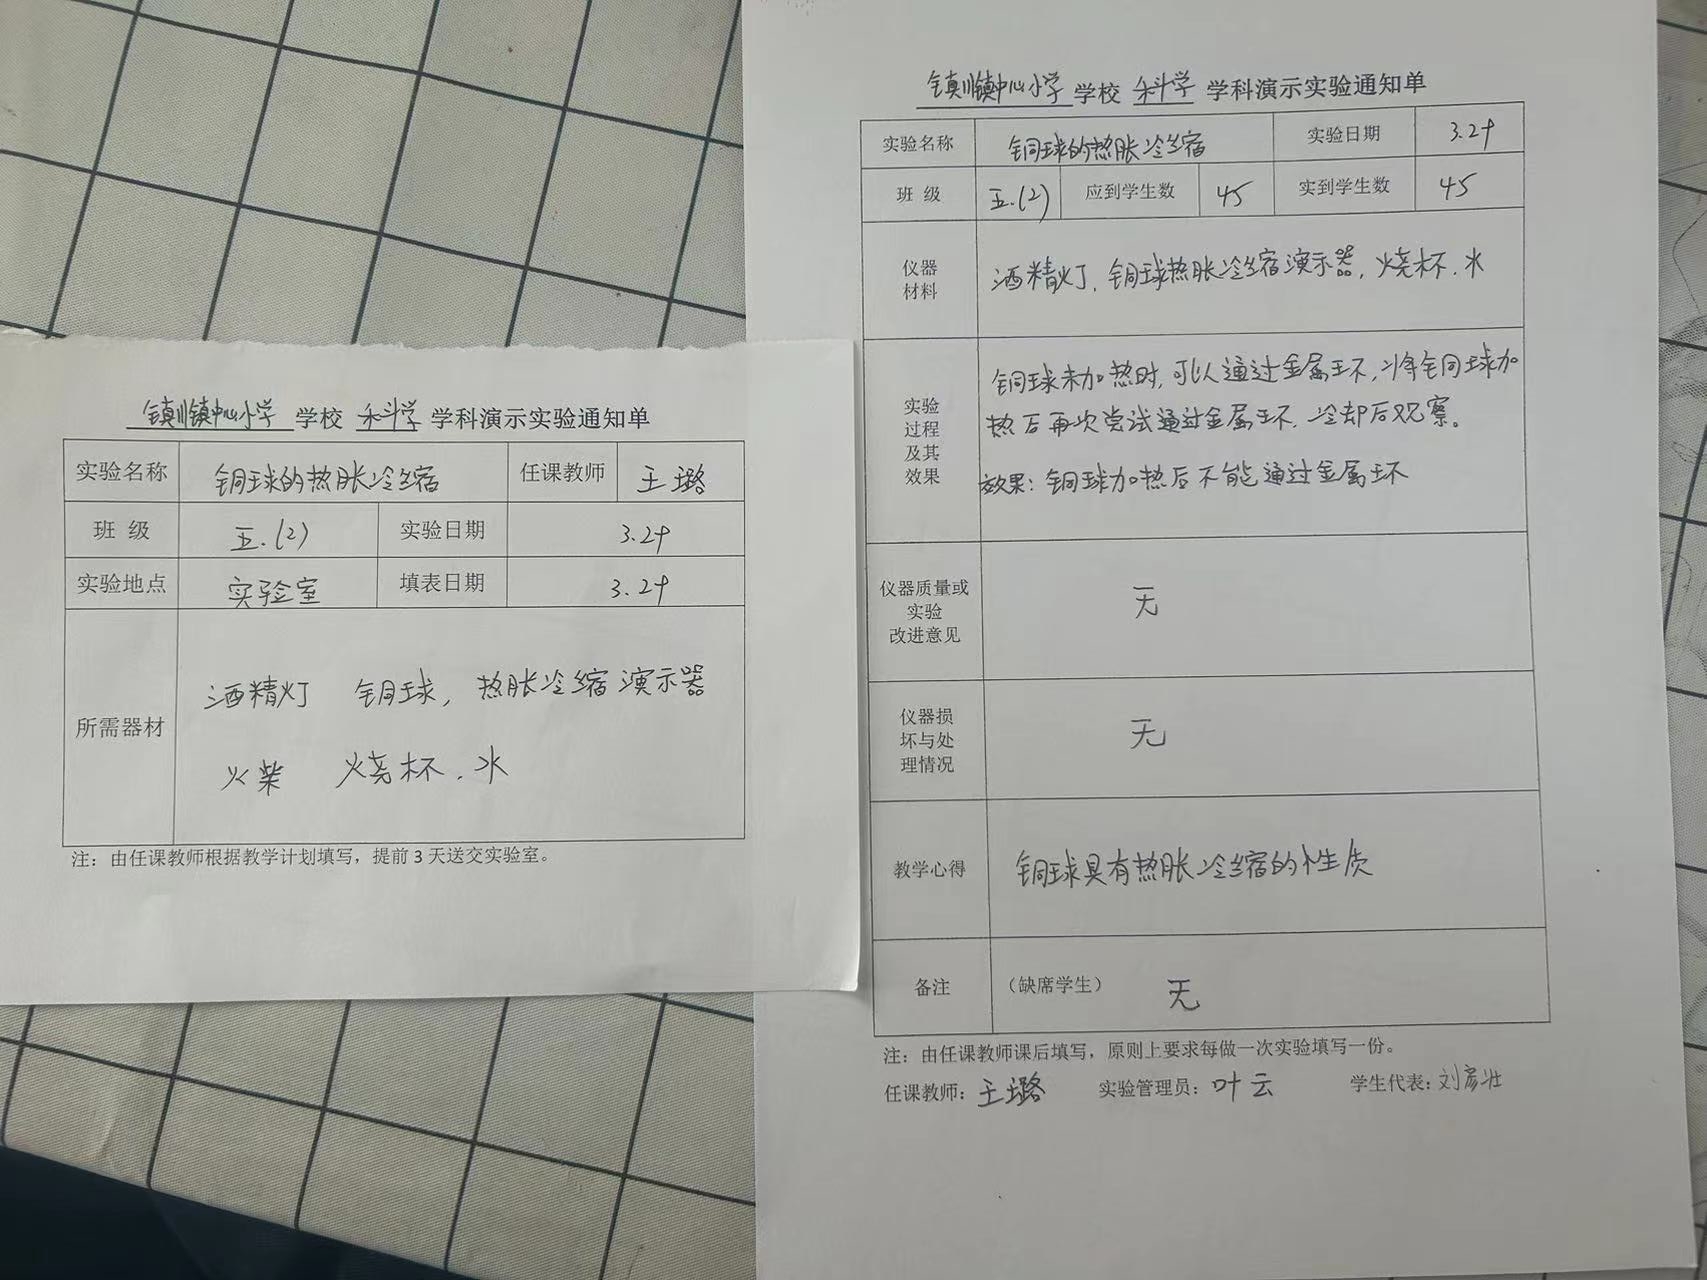 镇川镇中心小学 学校 科学 学科演示实验通知单
实验名称 铜球的热胀冷缩 任课教师 王璐
班 级 五.(2) 实验日期 3.29
实验地点 实验室 填表日期 3.29
所需器材
酒精灯 铜球, 热胀冷缩演示器
火柴 烧杯.水
注:由任课教师根据教学计划填写,提前3天送交实验室。
镇川镇中心小学 学校 科学 学科演示实验通知单
实验名称 铜球的热胀冷缩 实验日期 3.29
班 级 五.(2) 应到学生数 45 实到学生数 45
仪器
材料
酒精灯、铜球热胀冷缩演示器,烧杯.水
实验
过程
及其
效果
铜球未加热时,可以通过金属环,将铜球加
热后再次尝试通过金属环.冷却后观察。
效果:铜球加热后不能通过金属环
仪器质量或
实验
改进意见
无
仪器损
坏与处
理情况
无
教学心得 铜球具有热胀冷缩的性质
备注 (缺席学生) 无
注:由任课教师课后填写,原则上要求每做一次实验填写一份。
任课教师:王璐 实验管理员:叶云 学生代表:刘彦壮